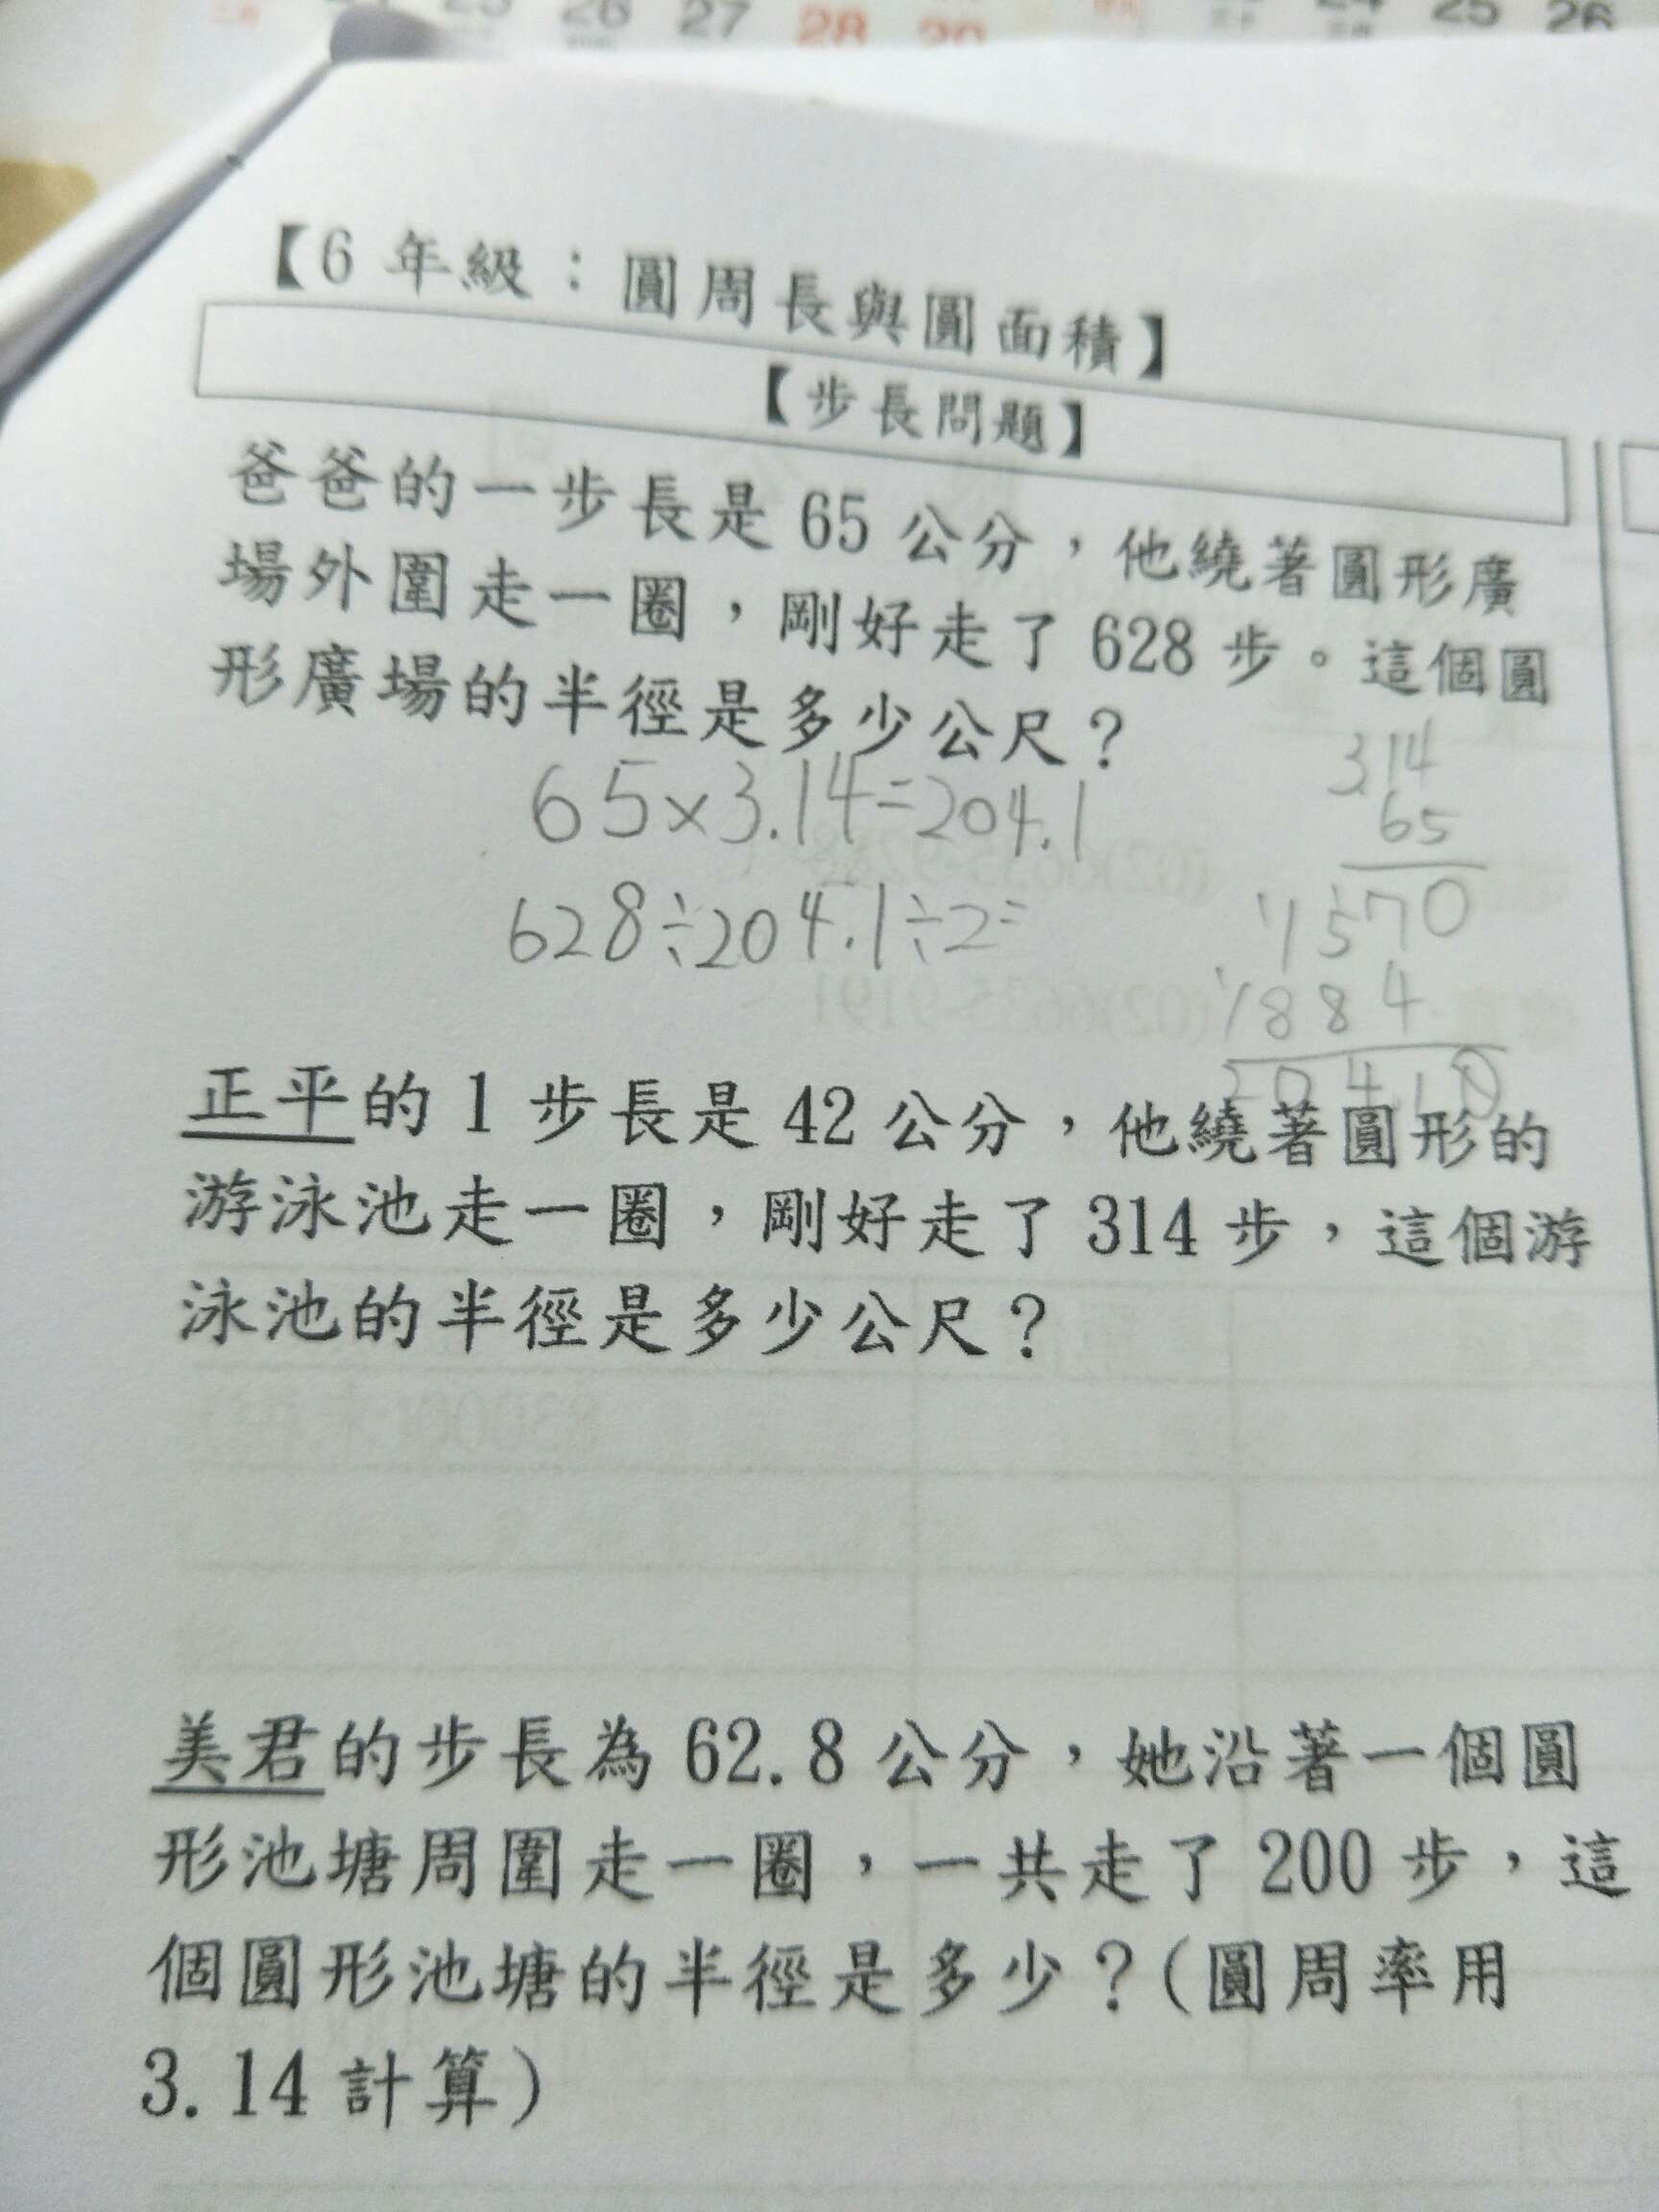 25 26 27 28 29
24 25 26
【6 年級：圓周長與圓面積】
【步長問題】
爸爸的一步長是 65 公分，他繞著圓形廣
場外圍走一圈，剛好走了 628 步。這個圓
形廣場的半徑是多少公尺？
65×3.14=204.1
628÷204.1÷2=
3.14
65
1570
1884
204.10
正平的 1 步長是 42 公分，他繞著圓形的
游泳池走一圈，剛好走了 314 步，這個游
泳池的半徑是多少公尺？
美君的步長為 62.8 公分，她沿著一個圓
形池塘周圍走一圈，一共走了 200 步，這
個圓形池塘的半徑是多少？(圓周率用
3.14 計算)